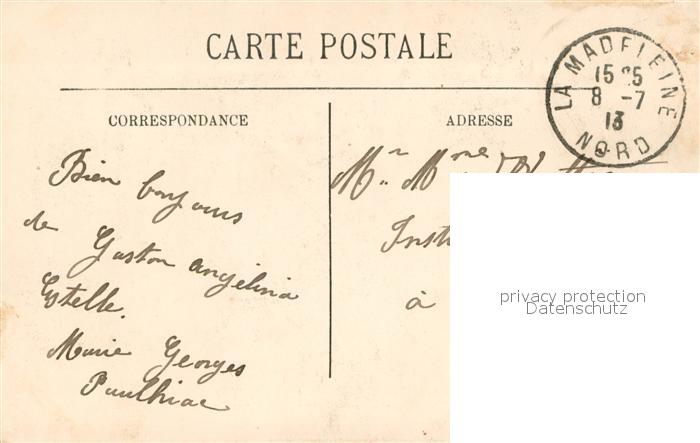 CARTE POSTALE
LA MADELEINE
15 25
8 -7
13
NORD
CORRESPONDANCE
ADRESSE
Bien bonjours
de Gaston Angelina
Estelle.
Marie Georges
Paulhiac
Mr. Mme
Inst
à
privacy protection
Datenschutz